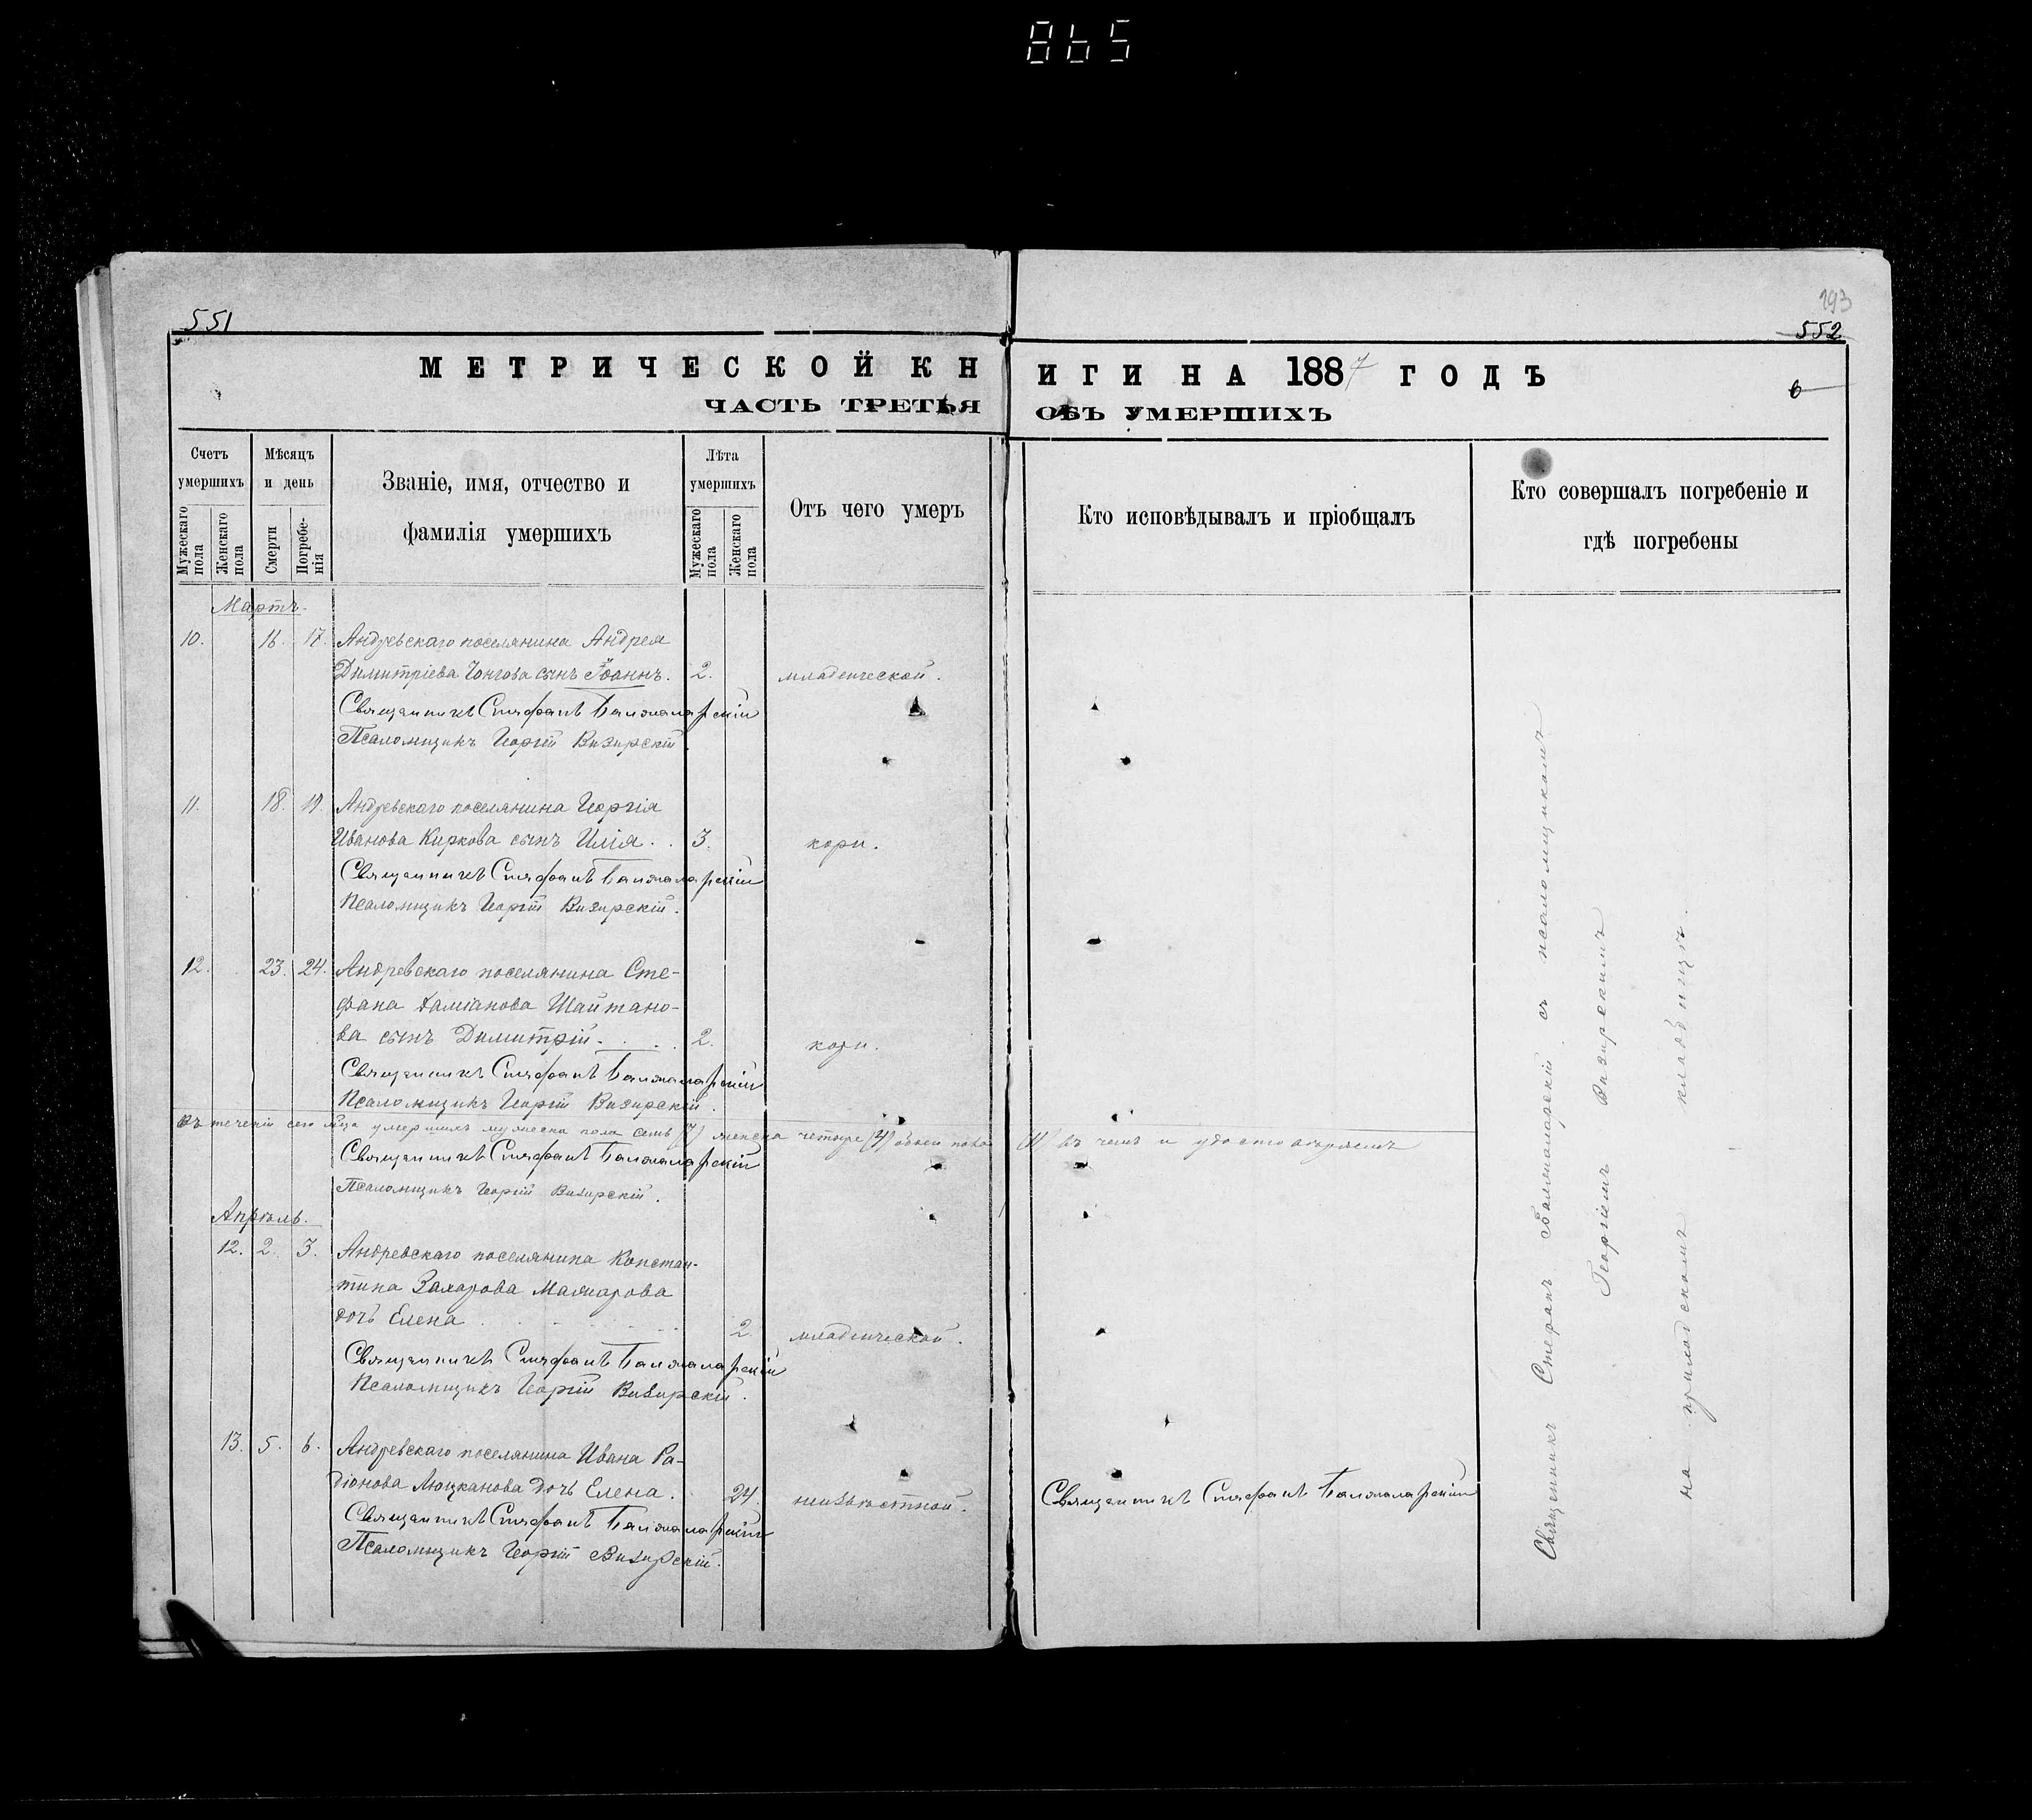 865
551
293
552
МЕТРИЧЕСКОЙ КНИГИ НА 1887 ГОДЪ
6
ЧАСТЬ ТРЕТЬЯ ОБЪ УМЕРШИХЪ
Счетъ умершихъ
Мужескаго пола
Женскаго пола
Мѣсяцъ и день
Смерти
Погребенія
Званіе, имя, отчество и
фамилія умершихъ
Лѣта умершихъ
Мужескаго пола
Женскаго пола
Отъ чего умеръ
Кто исповѣдывалъ и пріобщалъ
Кто совершалъ погребеніе и
гдѣ погребены
Мартъ.
10. 16. 17. Андревскаго поселянина Андрея
Димитріева Чонгова сынъ Іоаннъ. 2. младенческой.
Священникъ Стефанъ
Псаломщикъ Георгій Визирскій
11. 18. 19. Андревскаго поселянина Георгія
Иванова Киркова сынъ Илія. . 3. кори.
Священникъ Стефанъ
Псаломщикъ Георгій Визирскій.
12. 23. 24. Андревскаго поселянина Сте-
фана Даміанова Шайтано-
ва сынъ Димитрій. . . . 2. кори.
Священникъ Стефанъ
Псаломщикъ Георгій Визирскій.
Въ теченіи сего мѣсяца умершихъ мужеска пола семь (7) женска четыре (4) обоего пола (11) въ чемъ и удостовѣряемъ
Священникъ Стефанъ
Псаломщикъ Георгій Визирскій.
Апрѣль.
12. 2. 3. Андревскаго поселянина Констан-
тина Захарова Мажарова
дочь Елена 2. младенческой.
Священникъ Стефанъ
Псаломщикъ Георгій Визирскій.
13. 5. 6. Андревскаго поселянина Ивана Ра-
діонова Люцканова дочь Елена. 24. неизвѣстной. Священникъ Стефанъ
Священникъ Стефанъ
Псаломщикъ Георгій Визирскій.
Священникъ Стефанъ съ псаломщикомъ
Георгіемъ Визирскимъ
на приходскомъ кладбищѣ.